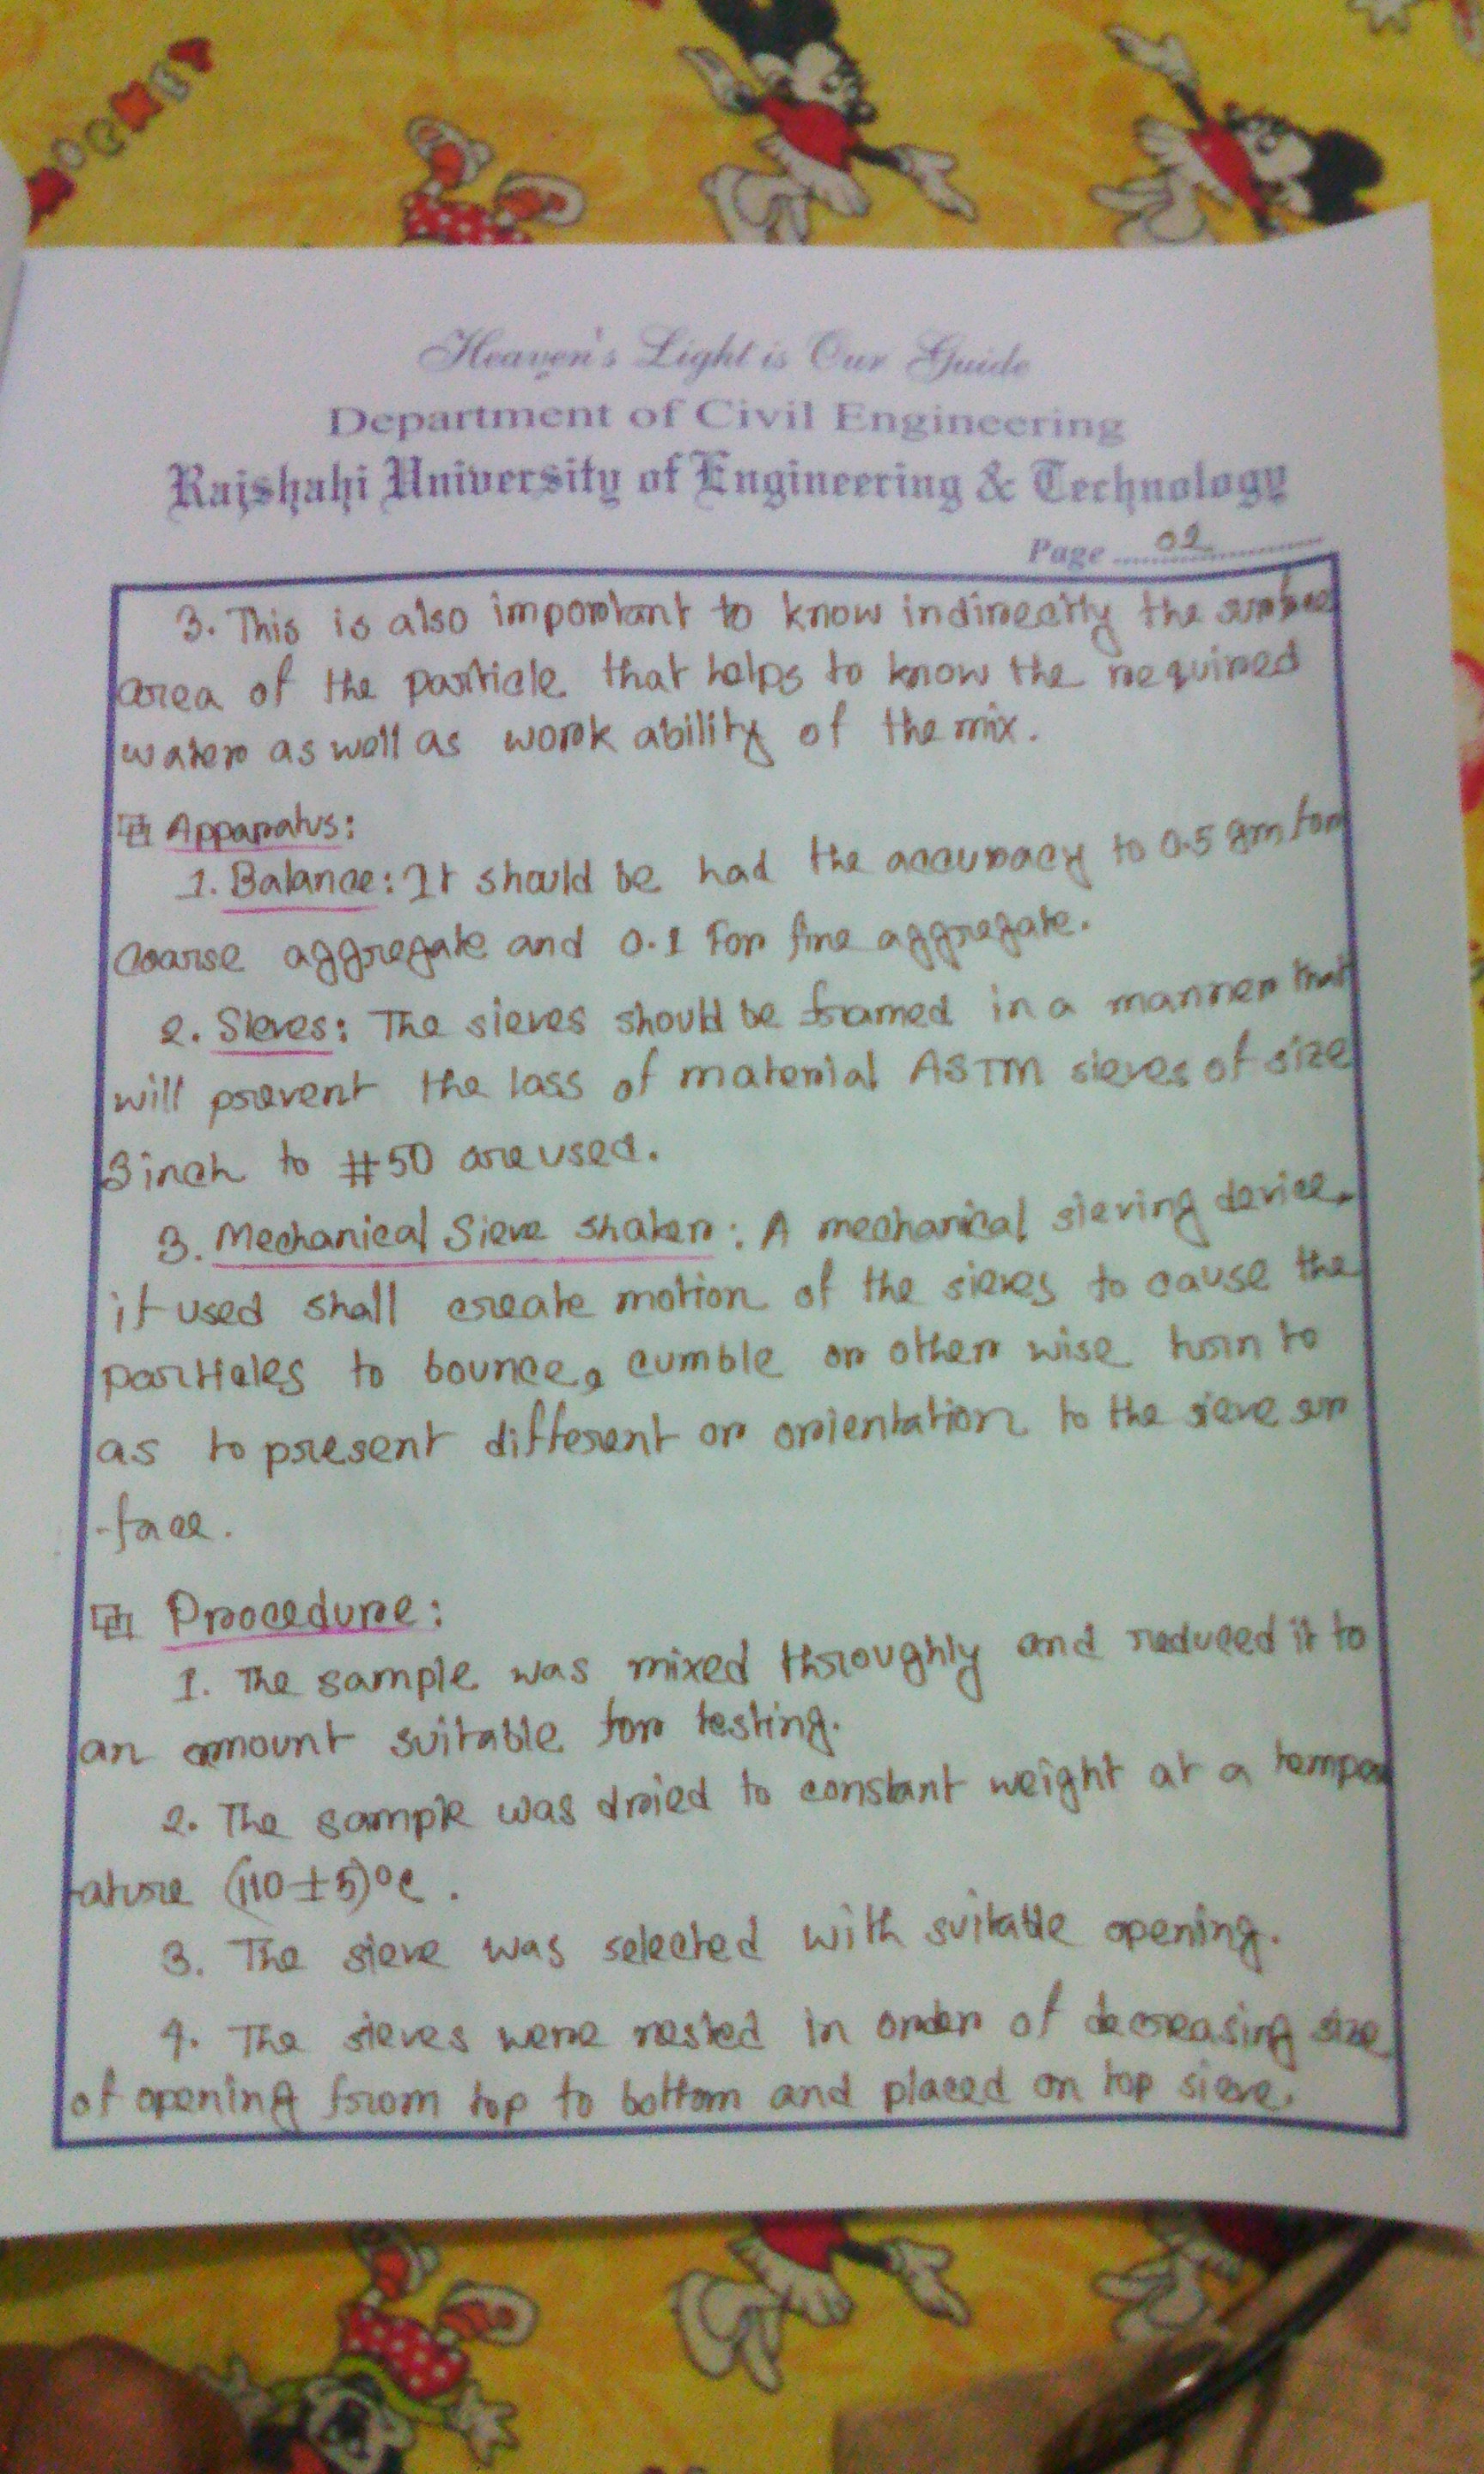 Heaven's Light is Our Guide
Department of Civil Engineering
Rajshahi University of Engineering & Technology
Page 02
3. This is also important to know indirectly the surface
area of the particle that helps to know the required
water as well as work ability of the mix.
Apparatus:
1. Balance: It should be had the accuracy to 0.5 gm for
coarse aggregate and 0.1 for fine aggregate.
2. Sieves: The sieves should be framed in a manner that
will prevent the loss of material ASTM sieves of size
3 inch to #50 are used.
3. Mechanical Sieve shaker: A mechanical sieving device,
if used shall create motion of the sieves to cause the
particles to bounce, cumble or other wise turn to
as to present different or orientation to the sieve sur
-face.
Procedure:
1. The sample was mixed throughly and reduced it to
an amount suitable for testing.
2. The sample was dried to constant weight at a tempe
rature (110±5)°c.
3. The sieve was selected with suitable opening.
4. The sieves were nested in order of decreasing size
of opening from top to bottom and placed on top sieve.